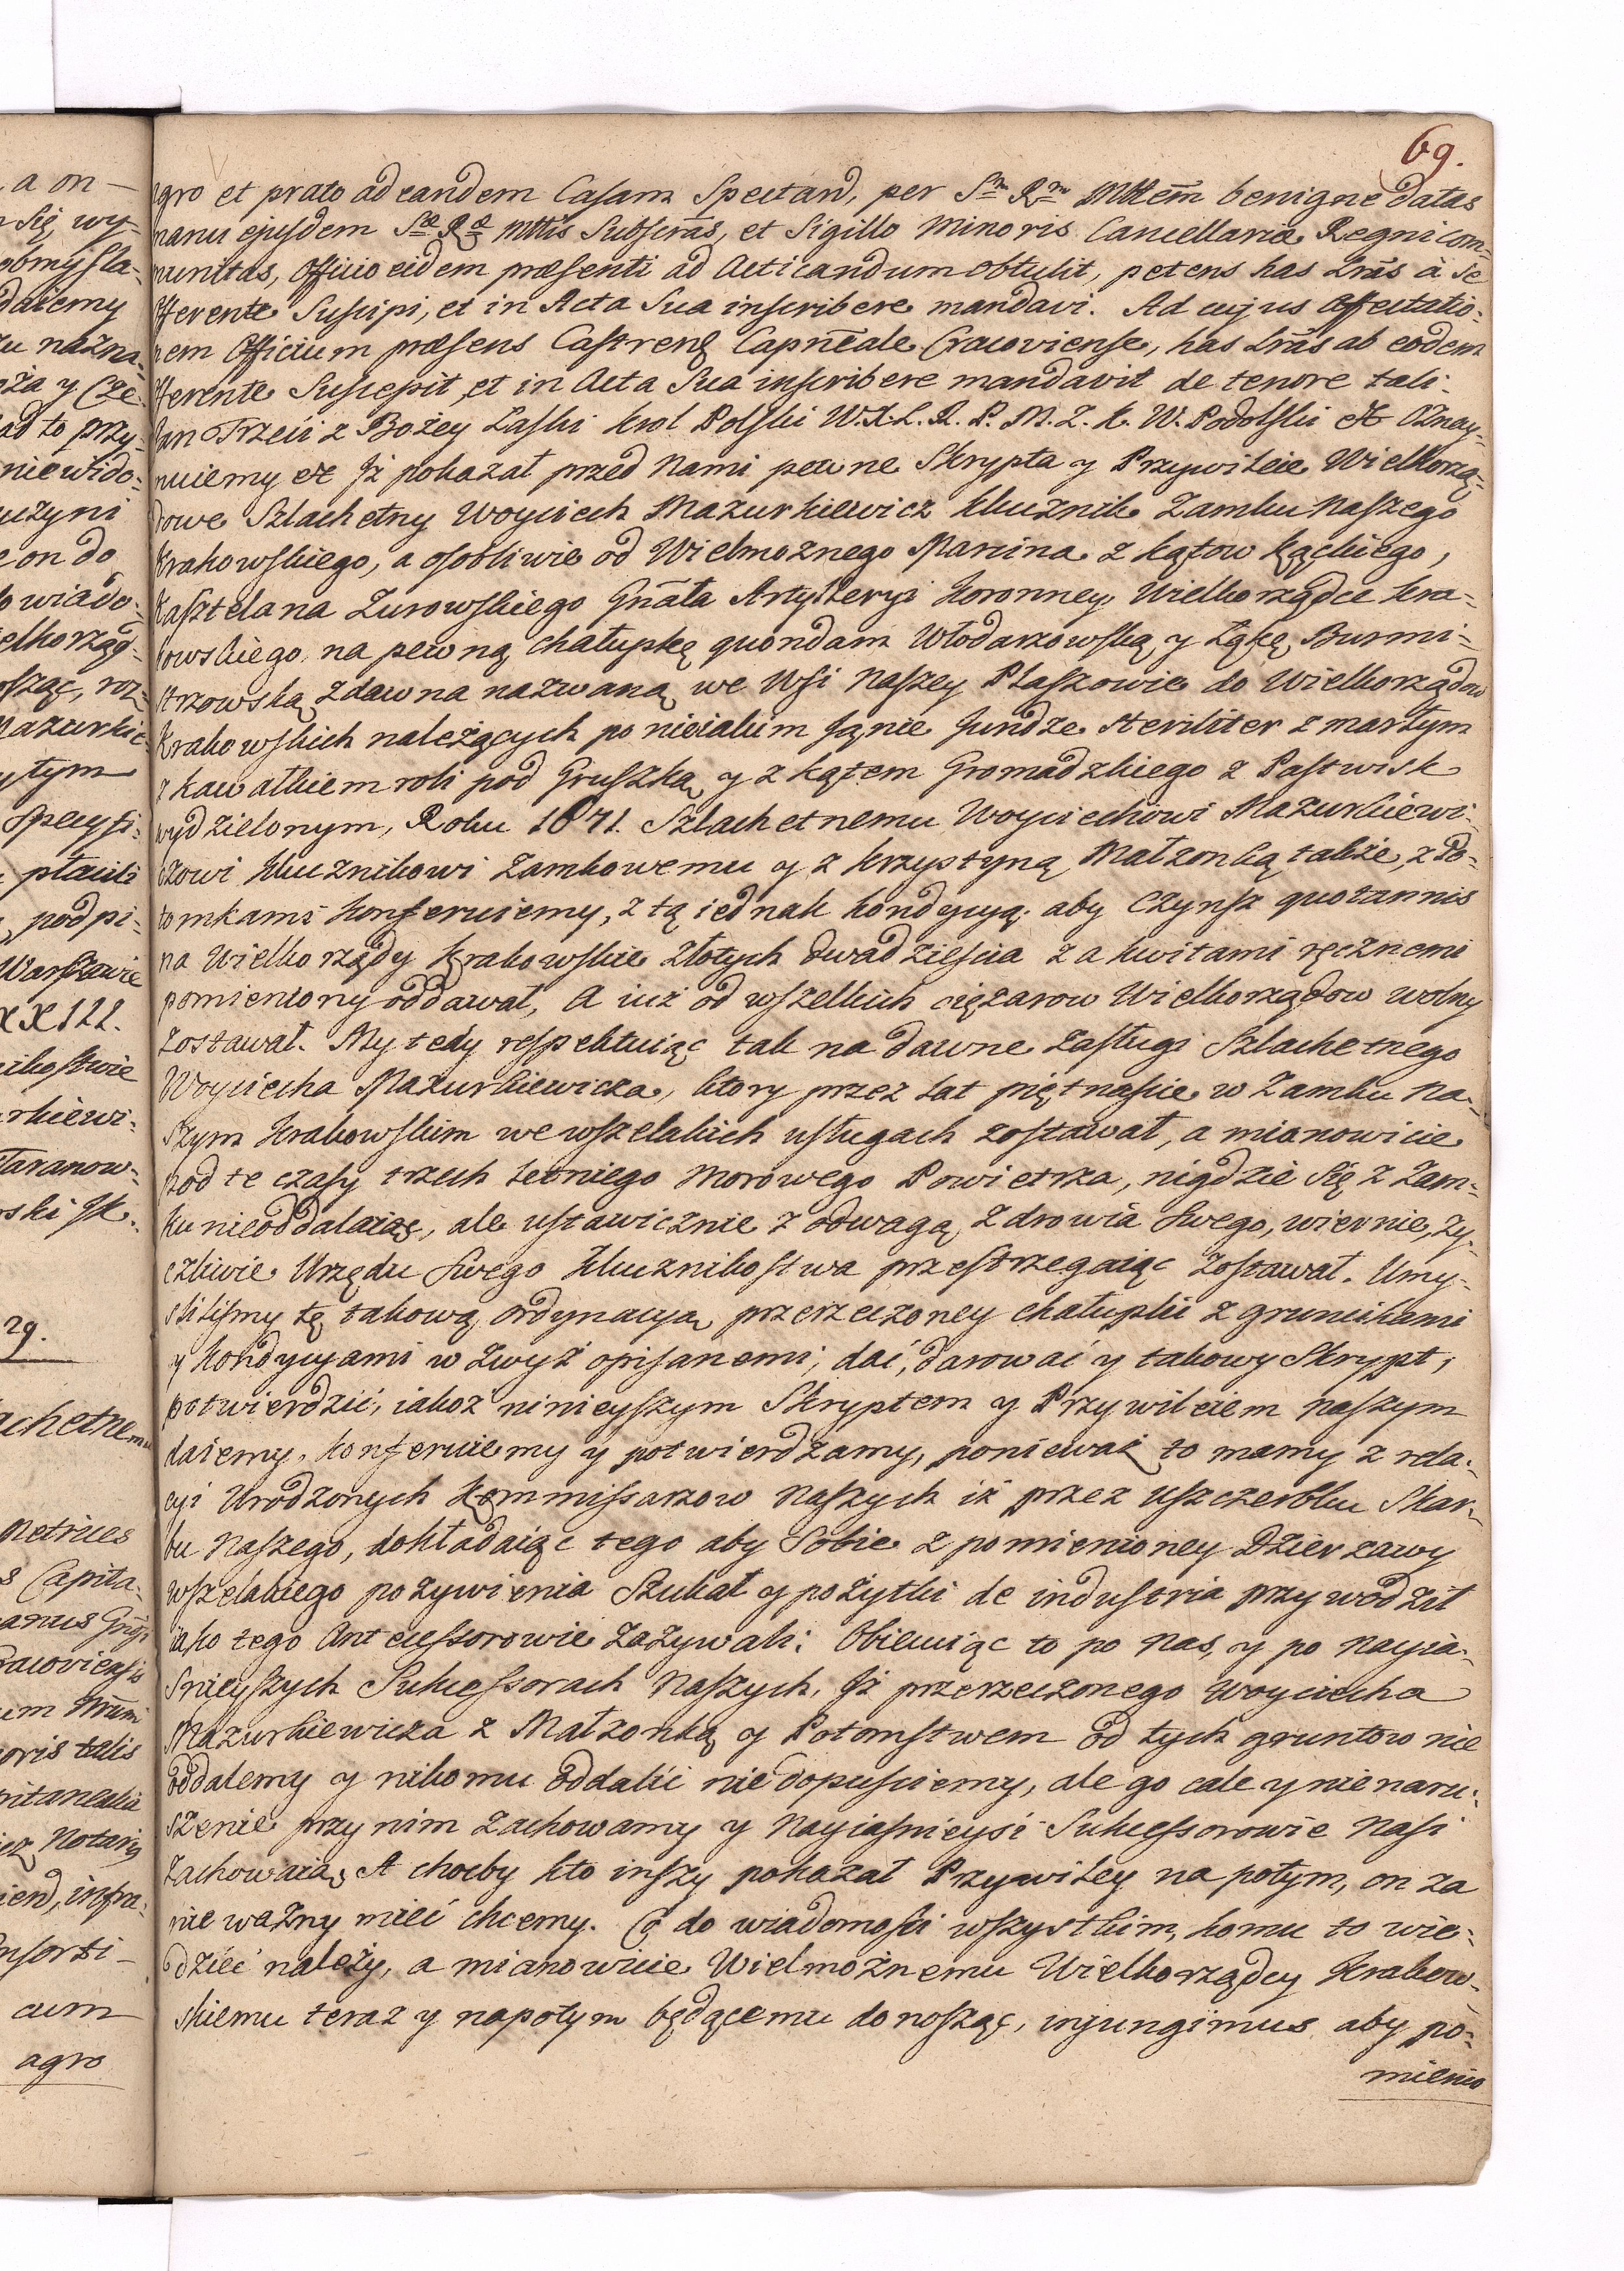 69.
agro et prato ad eandem Casam Spectand, per Sm Rm Mttem benigne datas
manu ejusdem Sæ Ræ Mttis Subscras, et Sigillo Minoris Cancellariæ Regni com-
munitas, Officio eidem præsenti ad Acticandum obtulit, petens has Lras à se
offerente Suscipi, et in Acta Sua inscribere mandavi. Ad cujus affectatio-
nem Officium præsens Castrens Capneale Cracoviense, has Lras ab eodem
offerente Suscepit, et in Acta Sua inscribere mandavit de tenore tali.
Jan Trzeci z Bożey Łaski Krol Polski W.X.L.R.P.M.Z.K.W. Podolski etc Oznay-
muiemy etc Iż pokazał przed Nami pewne Skrypta y Przywileie Wielkorzą-
dowe Szlachetny Woyciech Mazurkiewicz Klucznik Zamku Naszego
Krakowskiego, a osobliwie od Wielmoznego Marcina z Kątow Kąckiego,
Kasztelana Lwowskiego Gnała Artylleryi Koronney, Wielkorządce Kra-
kowskiego, na pewną chałupkę quondam Włodarzowską y Łąkę Burmi-
strzowską zdawna nazwaną we Wsi Naszey Płaszowie do Wielkorządow
Krakowskich należących po nieiakim Janie Fundze steriliter zmarłym
z kawałkiem roli pod Gruszką y z kątem Gromadzkiego z Pastwisk
wydzielonym, Roku 1671. Szlachetnemu Woyciechowi Mazurkiewi-
czowi Klucznikowi Zamkowemu y z Krzystyną Małzonką także, z Po-
tomkami konferuiemy, z tą iednak kondycyą: aby Czynsz quotannis
na Wielkorządy Krakowskie złotych dwadziescia za kwitami ręcznemi
pomieniony oddawał, A iuż od wszelkich ciężarow Wielkorządow wolny
zostawał. My tedy respektuiąc tak na dawne zasługi Szlachetnego
Woyciecha Mazurkiewicza, ktory przez lat piętnascie w Zamku Na-
szym Krakowskim we wszelakich usługach zostawał, a mianowicie
pod te czasy trzech letniego Morowego Powietrza, nigdzie się z Zam-
ku nieoddalaiąc, ale ustawicznie z odwagą zdrowia swego, wiernie, ży-
czliwie Urzędu swego Kluznikostwa przestrzegaiąc zostawał. Umy-
slilismy tę takową ordynacyą przerzeczoney chałupki z gruncikami
y kondycyami w zwyż opisanemi, dać, darować y takowy Skrypt,
potwierdzić, iakoż ninieyszym Skryptem y Przywileiem naszym
daiemy, konferuiemy y potwierdzamy, ponieważ to mamy z rela-
cyi Urodzonych Kommissarzow Naszych iż przez uszczerbku Skar-
bu Naszego, dokładaiąc tego aby Sobie z pomienioney Dzierzawy
wszelakiego pożywienia Szukał y pożytki de industria przywodził
iako tego Antecessorowie zażywali: Obiecuiąc to po Nas, y po Nayia-
snieyszych Sukcessorach Naszych, Iż przerzeczonego Woyciecha
Mazurkiewicza z Małzonką y Potomstwem od tych gruntow nie
oddalemy y nikomu oddalić nie dopusciemy, ale go cale y nienaru-
szenie przy nim zachowamy y Nayiasnieysi Sukcessorowie Nasi
zachowaią. A choćby kto inszy pokazał Przywiley na potym, on za
nie ważny mieć chcemy. Co do wiadomości wszystkim, komu to wie-
dzieć należy, a mianowicie Wielmożnemu Wielkorządcy Krakow-
skiemu teraz y napotym będącemu donosząc, injungimus aby po-
mienio